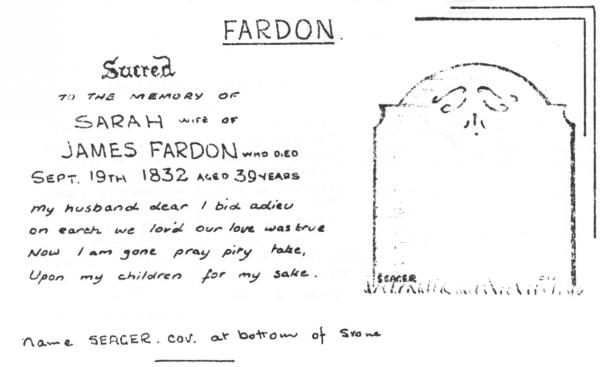 FARDON.
Sacred
TO THE MEMORY OF
SARAH WIFE OF
JAMES FARDON WHO DIED
SEPT. 19TH 1832 AGED 39 YEARS
my husband dear I bid adieu
on earth we lov'd our love was true
Now I am gone pray pity take,
Upon my children for my sake.
SEAGER
Name SEAGER. COV. at bottom of Stone